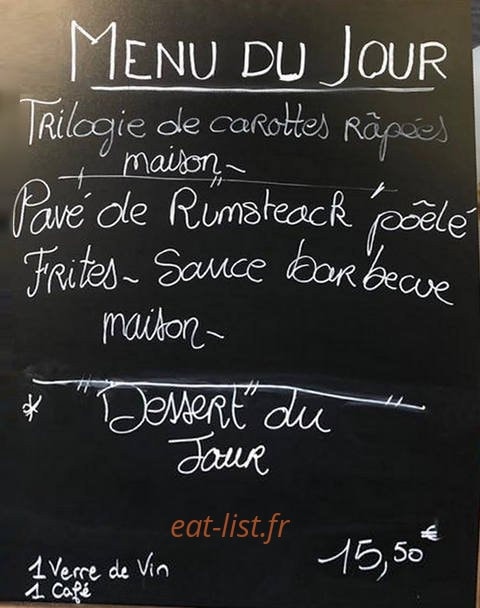 MENU DU JOUR
Trilogie de carottes râpées
maison~
Pavé de Rumsteack "poêlé"
Frites~ Sauce barbecue
maison~
* "Dessert" du
Jour
eat-list.fr
15,50€
1 Verre de Vin
1 Café